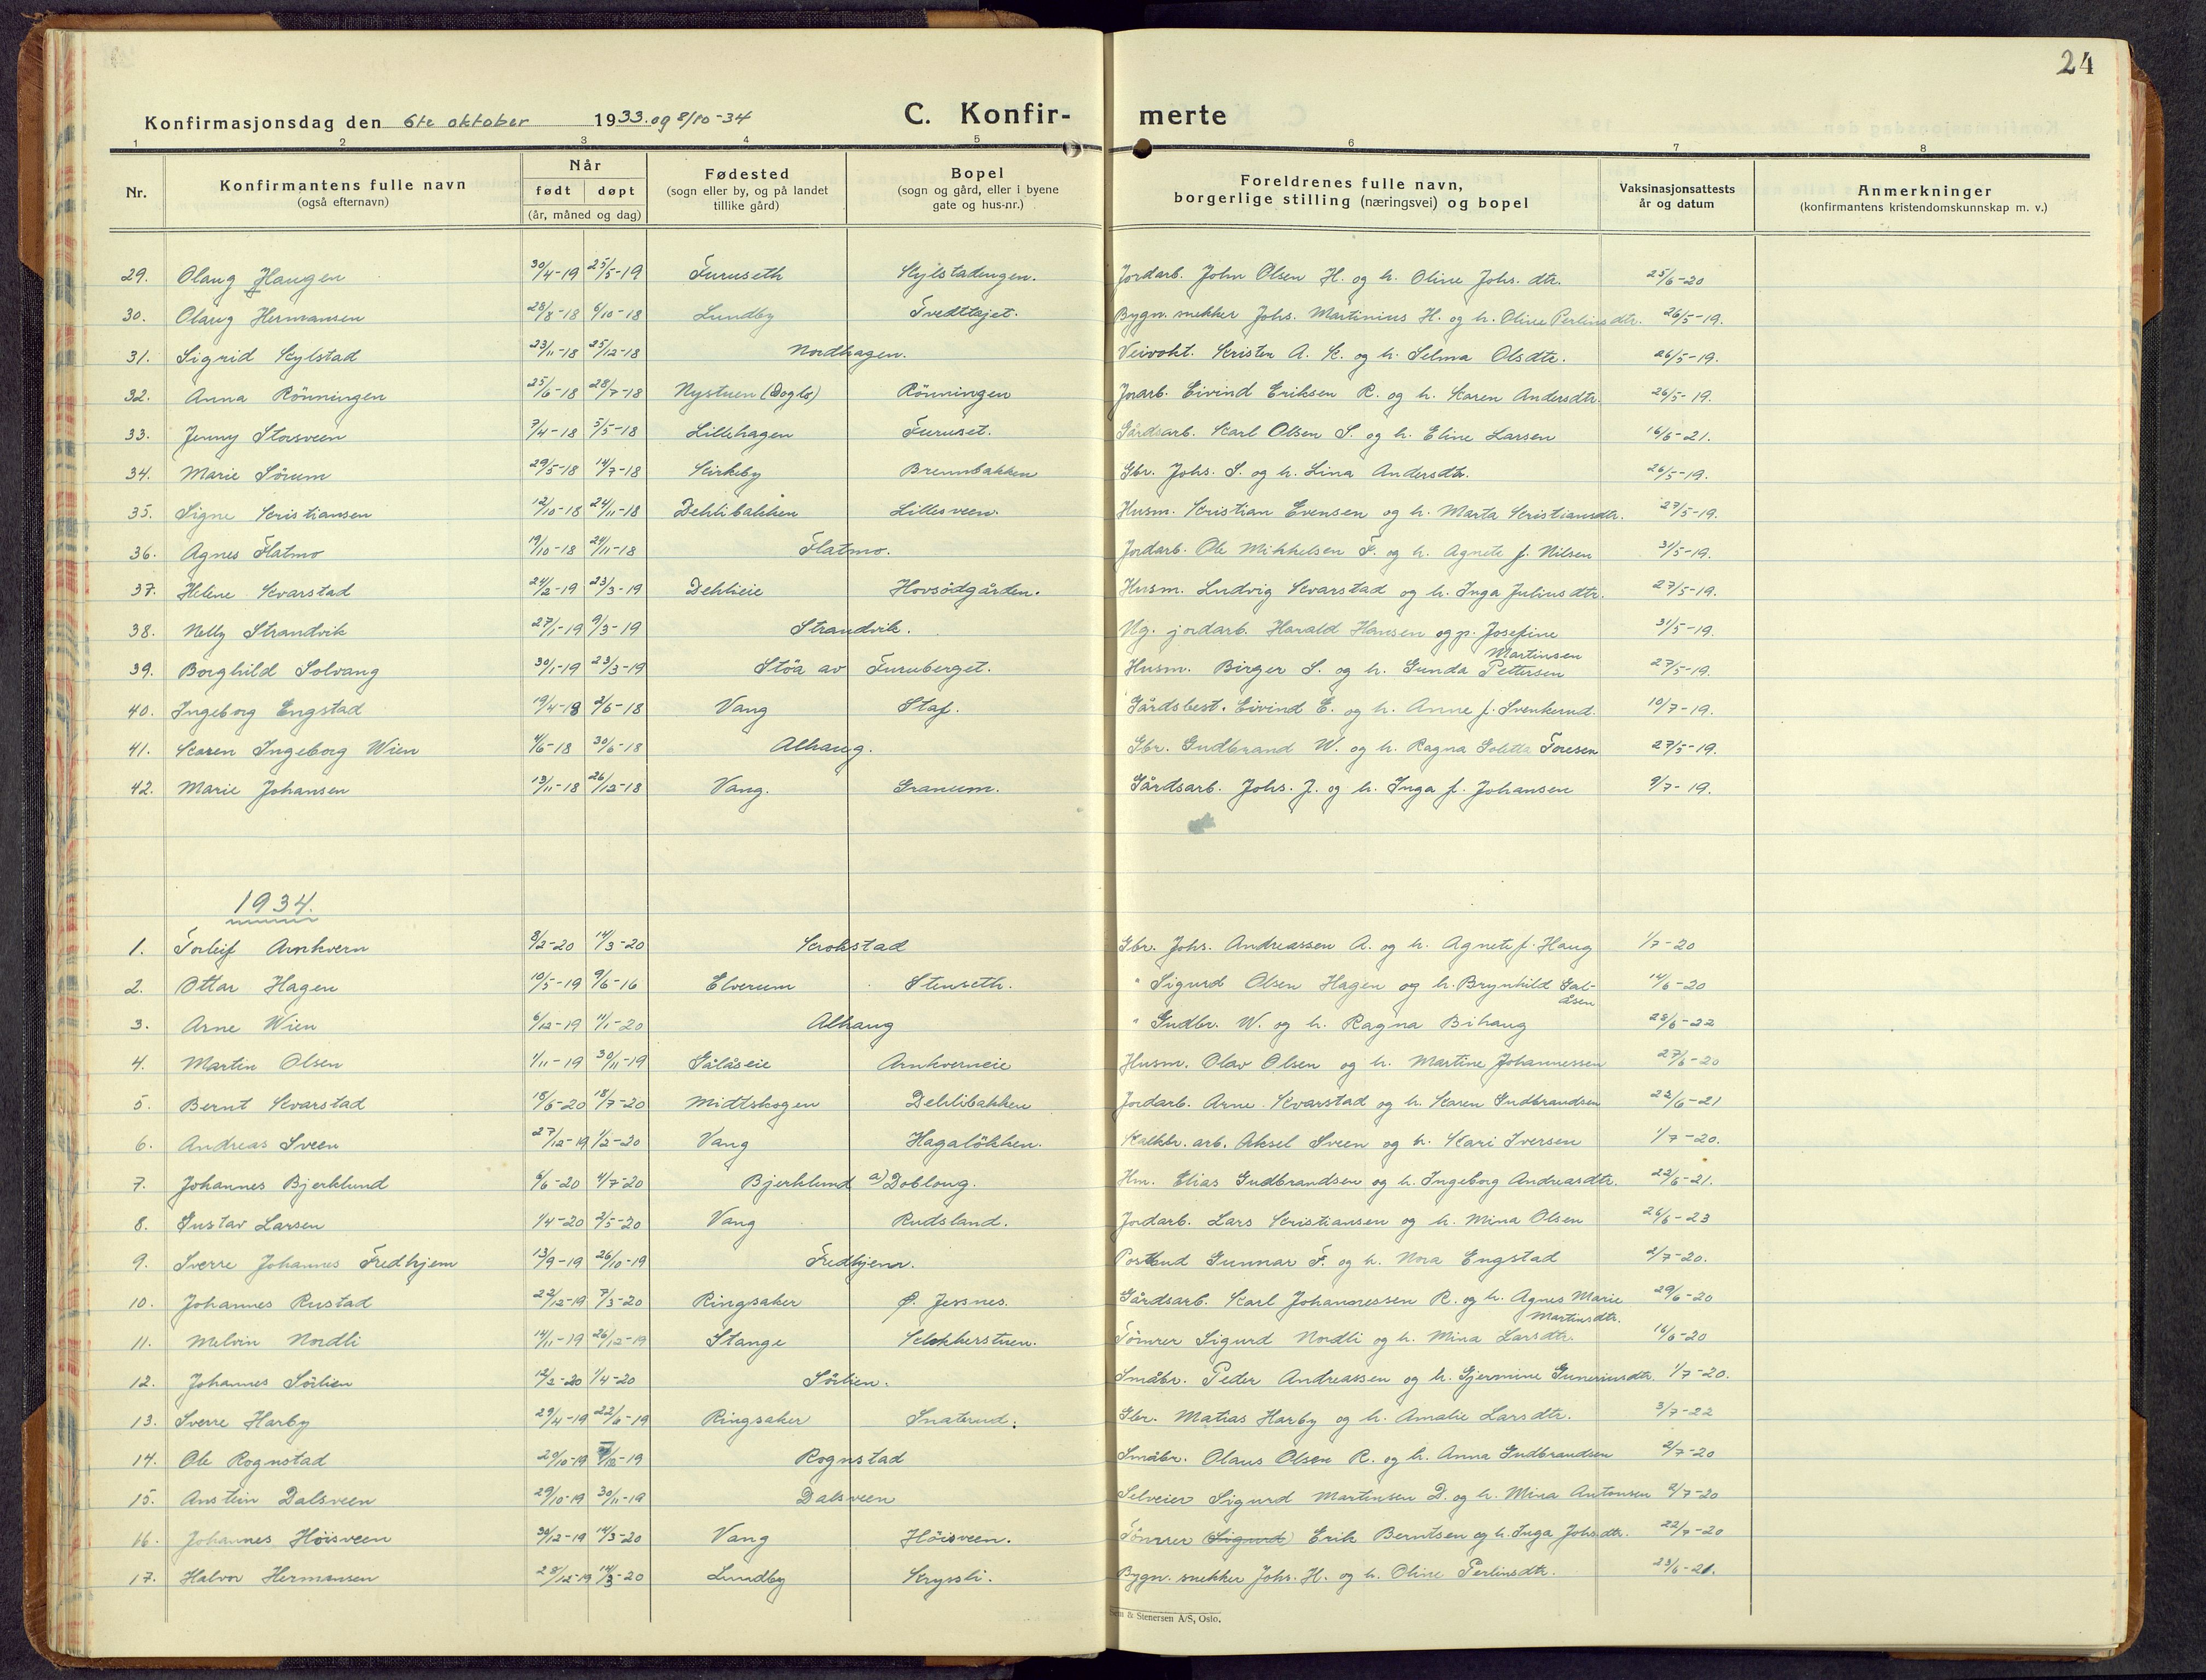 24
Konfirmasjonsdag den 6te oktober 1933. og 8/10-34 C. Konfir- merte
1 2 3 4 5 6 7 8
Nr. Konfirmantens fulle navn (også efternavn) Når født døpt (år, måned og dag) Fødested (sogn eller by, og på landet tillike gård) Bopel (sogn og gård, eller i byene gate og hus-nr.) Foreldrenes fulle navn, borgerlige stilling (næringsvei) og bopel Vaksinasjonsattests år og datum Anmerkninger (konfirmantens kristendomskunnskap m. v.)
29. Olaug Haugen 30/4-19 25/5-19 Furuseth Kylstadengen. Jordarb. John Olsen H. og h. Oline Johs. dtr. 25/6-20
30. Olaug Hermansen 28/8-18 6/10-18 Lundby Tvedttajet. Bygn. snekker Johs. Martinius H. og h. Oline Perlinsdtr. 26/5-19.
31. Sigrid Kylstad 23/11-18 25/12-18 Nordhagen. Veivokt. Krister A. K. og h. Selma Olsdtr. 26/5-19.
32. Anna Rönningen 25/6-18 28/7-18 Nystuen (Dogls) Rönningen Jnarb. Eivind Eriksen R. og h. Karen Andersdtr. 26/5-19.
33. Jenny Storsveen 7/4-18 5/5-18 Lillehagen Furuset. Gårdsarb. Karl Olsen S. og h. Eline Larsen 16/6-21.
34. Marie Sörum 29/5-18 14/7-18 Kirkeby Brennbakken Gbr. Johs. S. og h. Lina Andersdtr. 26/5-19.
35. Signe Kristiansen 12/10-18 24/11-18 Dehlibakken Lillesveen. Husm. Kristian Evensen og h. Marta Kristiansdtr. 27/5-19.
36. Agnes Flatmo 19/10-18 24/11-18 Flatmo. Jordarb. Ole Mikkelsen F. og h. Agnete f. Nilsen 31/5-19.
37. Helene Kvarstad 24/2-19 23/3-19 Dehlieie Hovsödgården. Husm. Ludvig Kvarstad og h. Inga Juliusdtr. 27/5-19.
38. Nelly Strandvik 27/1-19 9/3-19 Strandvik. Ug. jordarb. Harald Hansen og p. Josefine Martinsen 31/5-19.
39. Borghild Solvang 30/1-19 23/3-19 Stöa av Furuberget. Husm. Birger S. og h. Gunda Pettersen 27/5-19.
40. Ingeborg Engstad 19/4-18 2/6-18 Vang Staf. Gårdsbest. Eivind E. og h. Anne f. Svenkerud. 10/7-19.
41. Karen Ingeborg Wien 4/6-18 30/6-18 Alhaug. Gbr. Gudbrand W. og h. Ragna Goletta Toresen 27/5-19.
42. Marie Johansen 13/11-18 26/12-18 Vang. Granum. Gårdsarb. Johs. J. og h. Inga f. Johansen 9/7-19.
1934.
1. Torleif Arnkvern 8/2-20 14/3-20 Krokstad Gbr. Johs. Andreassen A. og h. Agnete f. Haug 1/7-20
2. Ottar Hagen 10/5-19 9/6-16 Elverum Stenseth. " Sigurd Olsen Hagen og h. Brynhild Galåsen 14/6-20
3. Arne Wien 6/12-19 11/1-20 Alhaug " Gudbr. W. og h. Ragna Bihaug 28/6-22
4. Martin Olsen 1/11-19 30/11-19 Gålåseie Arnkverneie Husm. Olav Olsen og h. Martine Johannessen 27/6-20
5. Bernt Kvarstad 18/6-20 18/7-20 Midtskogen Dehlibakken Jordarb. Arne Kvarstad og h. Karen Gudbrandsen 22/6-21
6. Andreas Sveen 27/12-19 1/2-20 Vang Hagalökken. Kalkbr. arb. Aksel Sveen og h. Kari Iversen 1/7-20.
7. Johannes Bjerklund 6/6-20 4/7-20 Bjerklund a) Doblong. Hm. Elias Gudbrandsen og h. Ingeborg Andreasdtr. 22/6-21.
8. Gustav Larsen 1/4-20 2/5-20 Vang Rudsland. Jordarb. Lars Kristiansen og h. Mina Olsen 26/6-23
9. Sverre Johannes Fredhjem 13/9-19 26/10-19 Fredhjem. Postbud Gunnar F. og h. Nora Engstad 2/7-20.
10. Johannes Rustad 22/12-19 7/3-20 Ringsaker Ø. Jessnes. Gårdsarb. Karl Johannessen R. og h. Agnes Marie Martinsdtr. 29/6-20
11. Melvin Nordli 14/11-19 26/12-19 Stange Klokkerstuen. Tömrer Sigurd Nordli og h. Mina Larsdtr. 16/6-20
12. Johannes Sörlien 12/2-20 1/4-20 Sörlien. Småbr. Peder Andreassen og h. Gjermine Gunerinsdtr. 1/7-20.
13. Sverre Harby 29/4-19 22/6-19 Ringsaker Snaterud. Gbr. Matias Harby og h. Amalie Larsdtr. 3/7-22
14. Ole Rognstad 20/10-19 7/12-19 Rognstad Småbr. Olaus Olsen R. og h. Anna Gudbrandsen 2/7-20
15. Anstein Dalsveen 29/10-19 30/11-19 Dalsveen Selveier Sigurd Martinsen D. og h. Mina Antonsen 2/7-20
16. Johannes Höisveen 30/12-19 14/3-20 Vang Höisveen. Tömrer (Sigurd) Erik Berntsen og h. Inga Johsdtr. 22/7-20
17. Halvor Hermansen 28/12-19 14/3-20 Lundby Kryssli. Bygn. snekker Johs. H. og h. Oline Perlinsdtr. 23/6-21.
& Stenersen A/S, Oslo.